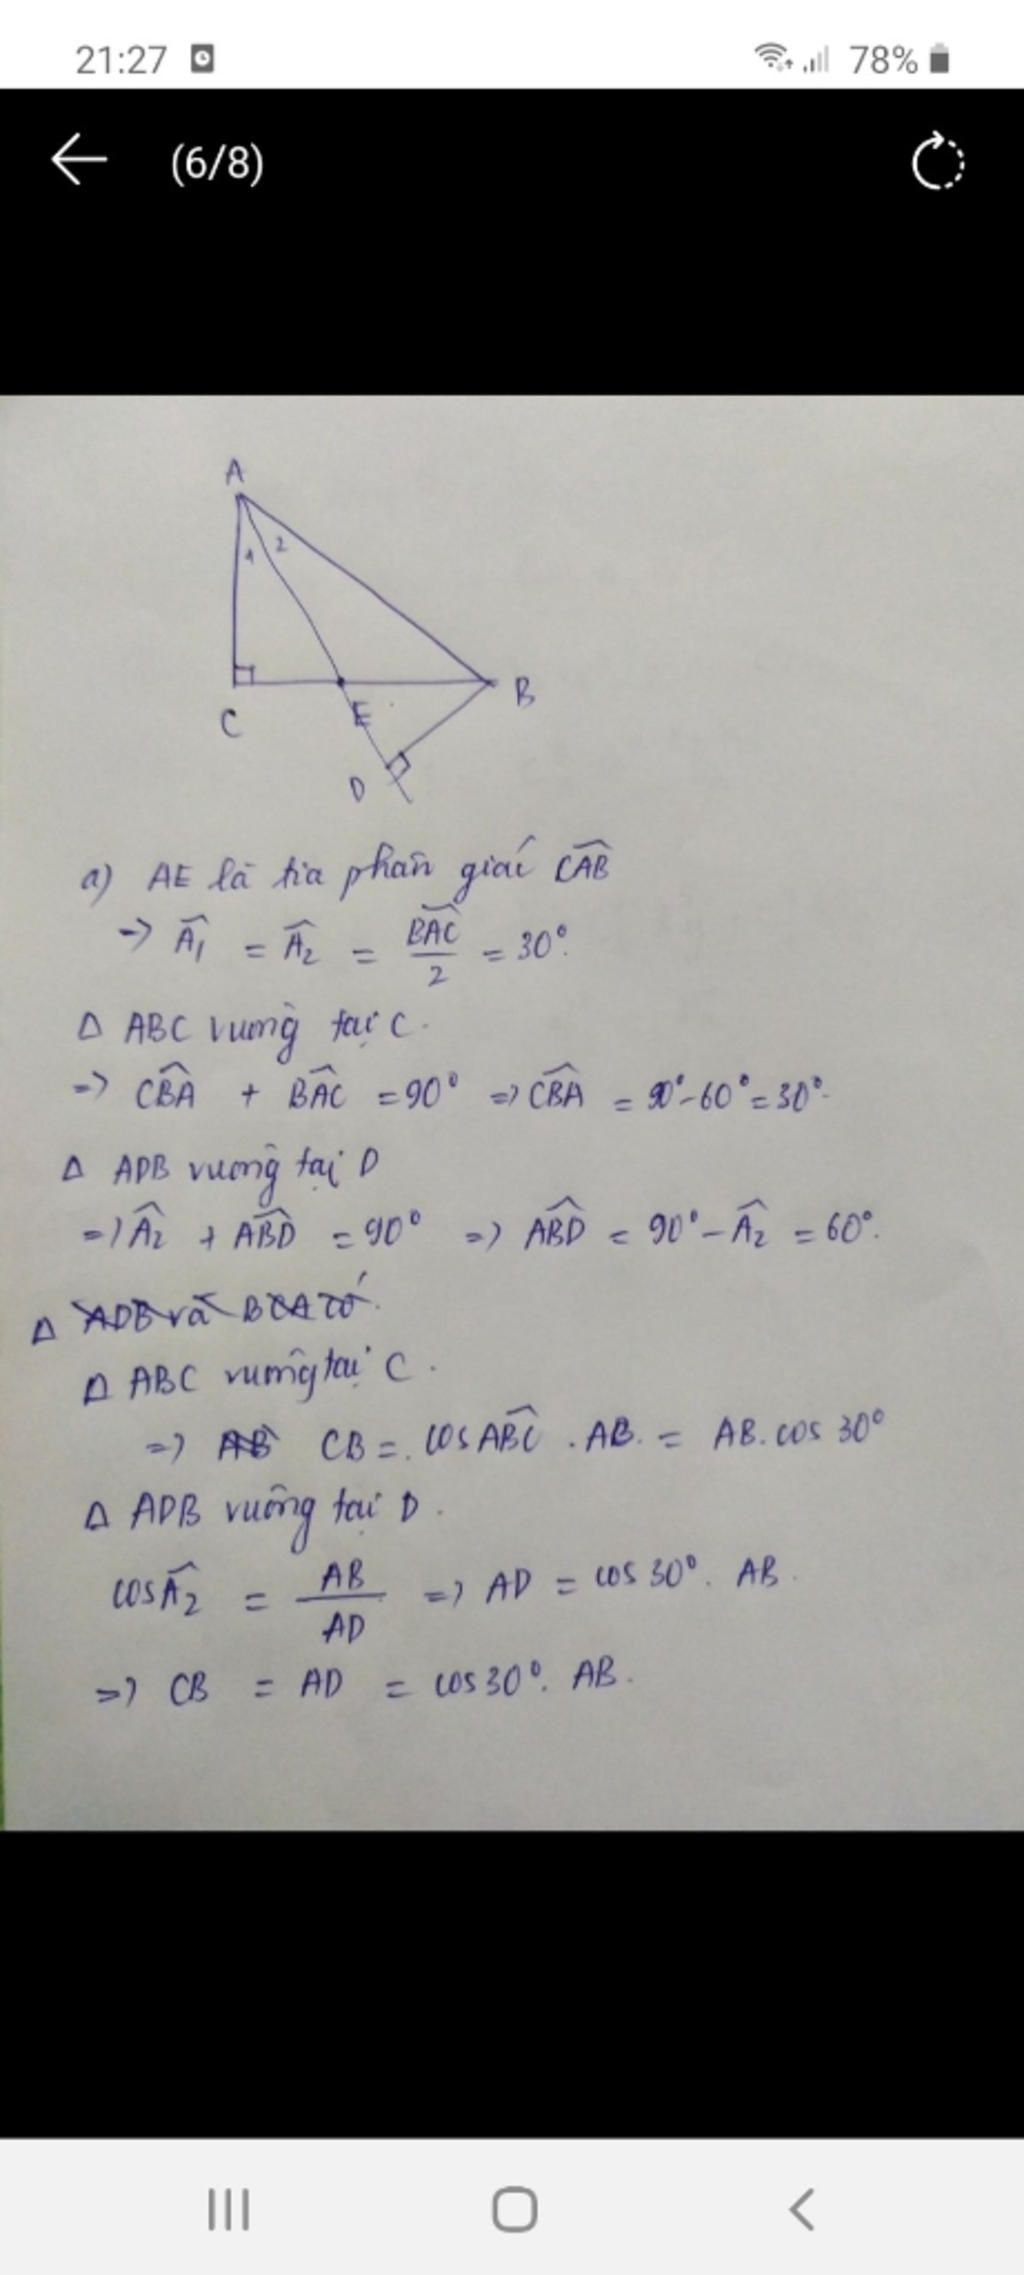 21:27 78%
(6/8)
A
1 2
C E B
D
a) AE là tia phân giác CAB
=> A1 = A2 = BAC/2 = 30°.
Δ ABC vuông tại C.
=> CBA + BAC = 90° => CBA = 90°-60° = 30°.
Δ ADB vuông tại D
=> A2 + ABD = 90° => ABD = 90° - A2 = 60°.
Δ ADB và BCA có.
Δ ABC vuông tại C.
=> AB CB = . cos ABC . AB. = AB. cos 30°
Δ ADB vuông tại D.
cos A2 = AB/AD => AD = cos 30°. AB.
=> CB = AD = cos 30°. AB.